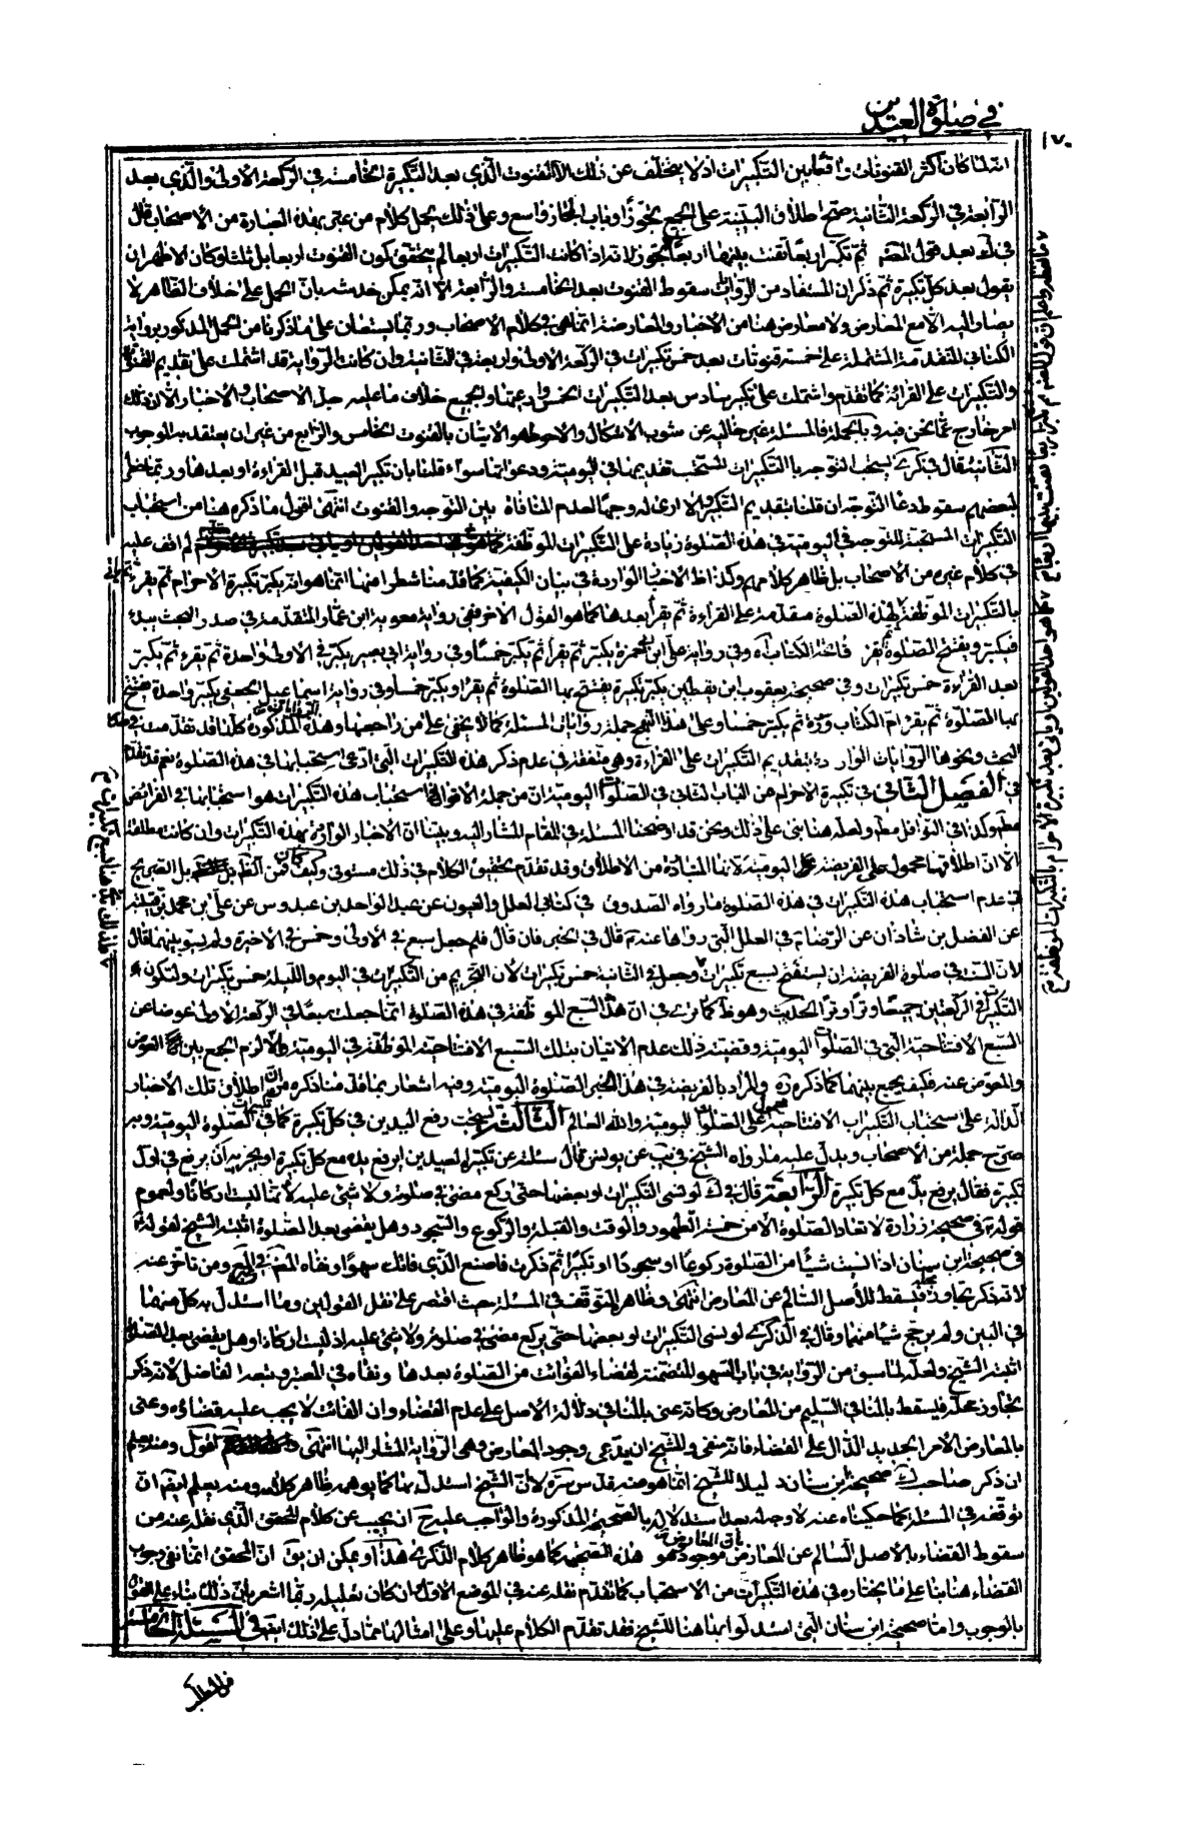 في صلوة العيدين
١٧٠
انه لما كان اكثر القنوتات واقعا بين التكبيرات اذ لا يختلف عن ذلك الا القنوت الذي بعد التكبيرة الخامسة في الركعة الاولى والذي بعد
الرابعة في الركعة الثانية صح اطلاق البينية على الجميع تجوزا وباب المجاز واسع وعلى ذلك يحمل كلام من عبر بهذه العبارة من الاصحاب قال
في ك بعد قول المصنف ثم تكبر اربعا تقنت بينها اربعا تجوز لانه اذا كانت التكبيرات اربعا لم يتحقق كون القنوت اربعا بل ثلثا وكان الاظهر ان
يقول بعد كل تكبيرة ثم ذكر ان المستفاد من الروايات سقوط القنوت بعد الخامسة والرابعة الا انه يمكن خدشه بان الحمل على خلاف الظاهر لا
يصار اليه الا مع المعارض ولا معارض هنا من الاخبار والمعارضة انما هي في كلام الاصحاب وربما يستعان على ما ذكرنا من الحمل المذكور برواية
الكناني المتقدمة المشتملة على خمسة قنوتات بعد خمس تكبيرات في الركعة الاولى واربعة في الثانية وان كانت الرواية قد اشتملت على تقديم القنوت
والتكبيرات على القرائة كما تقدم واشتملت على تكبير سادس بعد التكبيرات الخمس والجميع خلاف ما عليه جل الاصحاب والاخبار الا ان ذلك
امر خارج عما نحن فيه وبالجملة فالمسئلة غير خالية عن شوب الاشكال والاحوط هو الاتيان بالقنوت الخامس والرابع من غير ان يعتقد به الوجوب
الثانية قال في كرى يستحب التوجه بالتكبيرات المستحب تقديمها في اليومية ودعواتها سواء قلنا بان تكبير العيد قبل القراءة او بعدها وربما خطر
لبعضهم سقوط دعاء التوجه ان قلنا بتقديم التكبير ولا ارى له وجها لعدم المنافاة بين التوجه والقنوت انتهى اقول ما ذكره هنا من استحباب
التكبيرات المستحبة للتوجه في اليومية في هذه الصلوة زيادة على التكبيرات الموظفة لم اقف عليه
في كلام غيره من الاصحاب بل ظاهر كلامهم وكذا ظاهر الاخبار الواردة في بيان الكيفية كما قدمنا شطرا منها انما هو انه يكبر تكبيرة الاحرام ثم يقرء
بالتكبيرات الموظفة لهذه الصلوة مقدمة على القراءة ثم يقرأ بعدها كما هو القول الاخر ففي رواية معوية ابن عمار المتقدمة في صدر البحث يبدء
فيكبر ويفتتح الصلوة ثم يقرء فاتحة الكتاب اه وفي رواية علي ابن ابي حمزة يكبر ثم يقرأ ثم يكبر خمسا وفي رواية ابي بصير يكبر في الاولى واحدة ثم يقرء ثم يكبر
بعد القراءة خمس تكبيرات وفي صحيحة يعقوب ابن يقطين يكبر تكبيرة يفتتح بها الصلوة ثم يقرء ويكبر خمسا وفي رواية اسماعيل الجعفي يكبر واحدة يفتتح
بها الصلوة ثم يقرء ام الكتاب وسورة ثم يكبر خمسا وعلى هذا النهج جملة روايات المسئلة كما لا يخفى على من راجعها وهذه الروايات المذكورة كلها قد تقدمت في صدر
البحث ونحوها الروايات الواردة بتقديم التكبيرات على القراءة وهي متفقة في عدم ذكر هذه التكبيرات التي ادعى استحبابها في هذه الصلوة نعم قد تقدم
في الفصل الثاني في تكبيرة الاحرام من الباب الثاني في الصلوات اليومية ان من جملة الاقوال في استحباب هذه التكبيرات هو استحبابها في الفرائض
مطلقا وكذا في النوافل مطلقا ولعله هنا بنى على ذلك ونحن قد اوضحنا المسئلة في المقام المشار اليه وبينا ان الاخبار الواردة بهذه التكبيرات وان كانت مطلقة
الا ان اطلاقها محمول على الفريضة اليومية لانها المتبادرة من الاطلاق وقد تقدم تحقيق الكلام في ذلك مستوفى وكيف كان فمن الظاهر بل الصريح
في عدم استحباب هذه التكبيرات في هذه الصلوة ما رواه الصدوق في كتابي العلل والعيون عن عبد الواحد بن عبدوس عن علي بن محمد بن قتيبة
عن الفضل بن شاذان عن الرضا في العلل التي رواها عنه قال في الخبر فان قال فلم جعل سبع في الاولى وخمس في الاخيرة ولم يسو بينهما قال
لان السنة في صلوة الفريضة ان يستفتح بسبع تكبيرات وجعل في الثانية خمس تكبيرات لان التحريم من التكبيرات في اليوم والليلة خمس تكبيرات ولتكون
التكبير في الركعتين جميعا وترا وترا الحديث وهو ظاهر كما ترى في ان هذا السبع الموظفة في هذه الصلوة انما جعلت سبعا في الركعة الاولى عوضا عن
السبع الافتتاحية التي في الصلوات اليومية وقضية ذلك عدم الاتيان بتلك السبع الافتتاحية الموظفة في اليومية والا لزم الجمع بين العوض
والمعوض عنه فكيف يجمع بينهما كما ذكره ره والمراد بالفريضة في هذا الخبر الصلوة اليومية وفيه اشعار بما قدمنا ذكره من ان اطلاق تلك الاخبار
الدالة على استحباب التكبيرات الافتتاحية محمول على الصلوات اليومية والله العالم الثالثة يستحب رفع اليدين في كل تكبيرة كما في تكبيرات الصلوة اليومية وبه
صرح جملة من الاصحاب ويدل عليه ما رواه الشيخ في يب عن يونس قال سئلته عن تكبير العيدين ايرفع يده مع كل تكبيرة او يجزيه ان يرفع في اول
تكبيرة فقال يرفع يده مع كل تكبيرة الرابعة قال في ك لو نسى التكبيرات او بعضها حتى ركع مضى في صلوته ولا شئ عليه لانها ليست اركانا ولعموم
قوله في صحيحة زرارة لا تعاد الصلوة الا من خمسة الطهور والوقت والقبلة والركوع والسجود وهل يقضى بعد الصلوة اثبته الشيخ لقوله
في صحيحة ابن سنان اذا نسيت شيئا من الصلوة ركوعا او سجودا او تكبيرا ثم ذكرت فاصنع الذي فاتك سهوا ونفاه المصنف في المعتبر ومن تاخر عنه
لانه ذكر تجاوز محله فيسقط للاصل السالم عن المعارض انتهى وظاهره التوقف في المسئلة حيث اقتصر على نقل القولين وما استدل به كل منهما
في البين ولم يرجح شيئا منهما وقال في الذكرى لو نسى التكبيرات او بعضها حتى يركع مضى في صلوته ولا شئ عليه اذ ليست اركانا وهل يقضى بعد الصلوة
اثبته الشيخ ولعله لما سبق من الرواية في باب السهو المتضمنة لقضاء الفوائت من الصلوة بعدها ونفاه في المعتبر وتبعه الفاضل لانه ذكر
تجاوز محله فيسقط بالنافي السليم من المعارض وكانه عنى بالنافي دلالة الاصل على عدم القضاء وان الفائت لا يجب عليه قضاؤه وعنى
بالمعارض الامر الجديد الدال على القضاء فانه منفى وللشيخ ان يدعى وجود المعارض وهى الرواية المشار اليها انتهى اقول ومنه يعلم
ان ذكر صاحب ك صحيحة ابن سنان دليلا للشيخ انما هو منه قدس سره لا ان الشيخ استدل بها كما يوهمه ظاهر كلامه ومنه يعلم ايضا ان
توقفه في المسئلة كما حكيناه عنه لا وجه له بعد استدلاله بالصحيحة المذكورة والواجب عليه ح ان يجيب عن كلام المحقق الذي نقله عنه من
سقوط القضاء بالاصل السالم عن المعارض بان المعارض موجود وهو هذه الصحيحة كما هو ظاهر كلام الذكرى هذا ويمكن ان يق ان المحقق انما نفى وجوب
القضاء هنا بناء على ما يختاره في هذه التكبيرات من الاستحباب كما تقدم نقله عنه في الموضع الاول وان كان تعليله ربما اشعر بان ذلك بناء على القول
بالوجوب واما صحيحة ابن سنان التي استدلوا بها هنا للشيخ فقد تقدم الكلام عليها وعلى امثالها مما دل على ذلك ايضا في المسئلة الخامسة
من المطلب